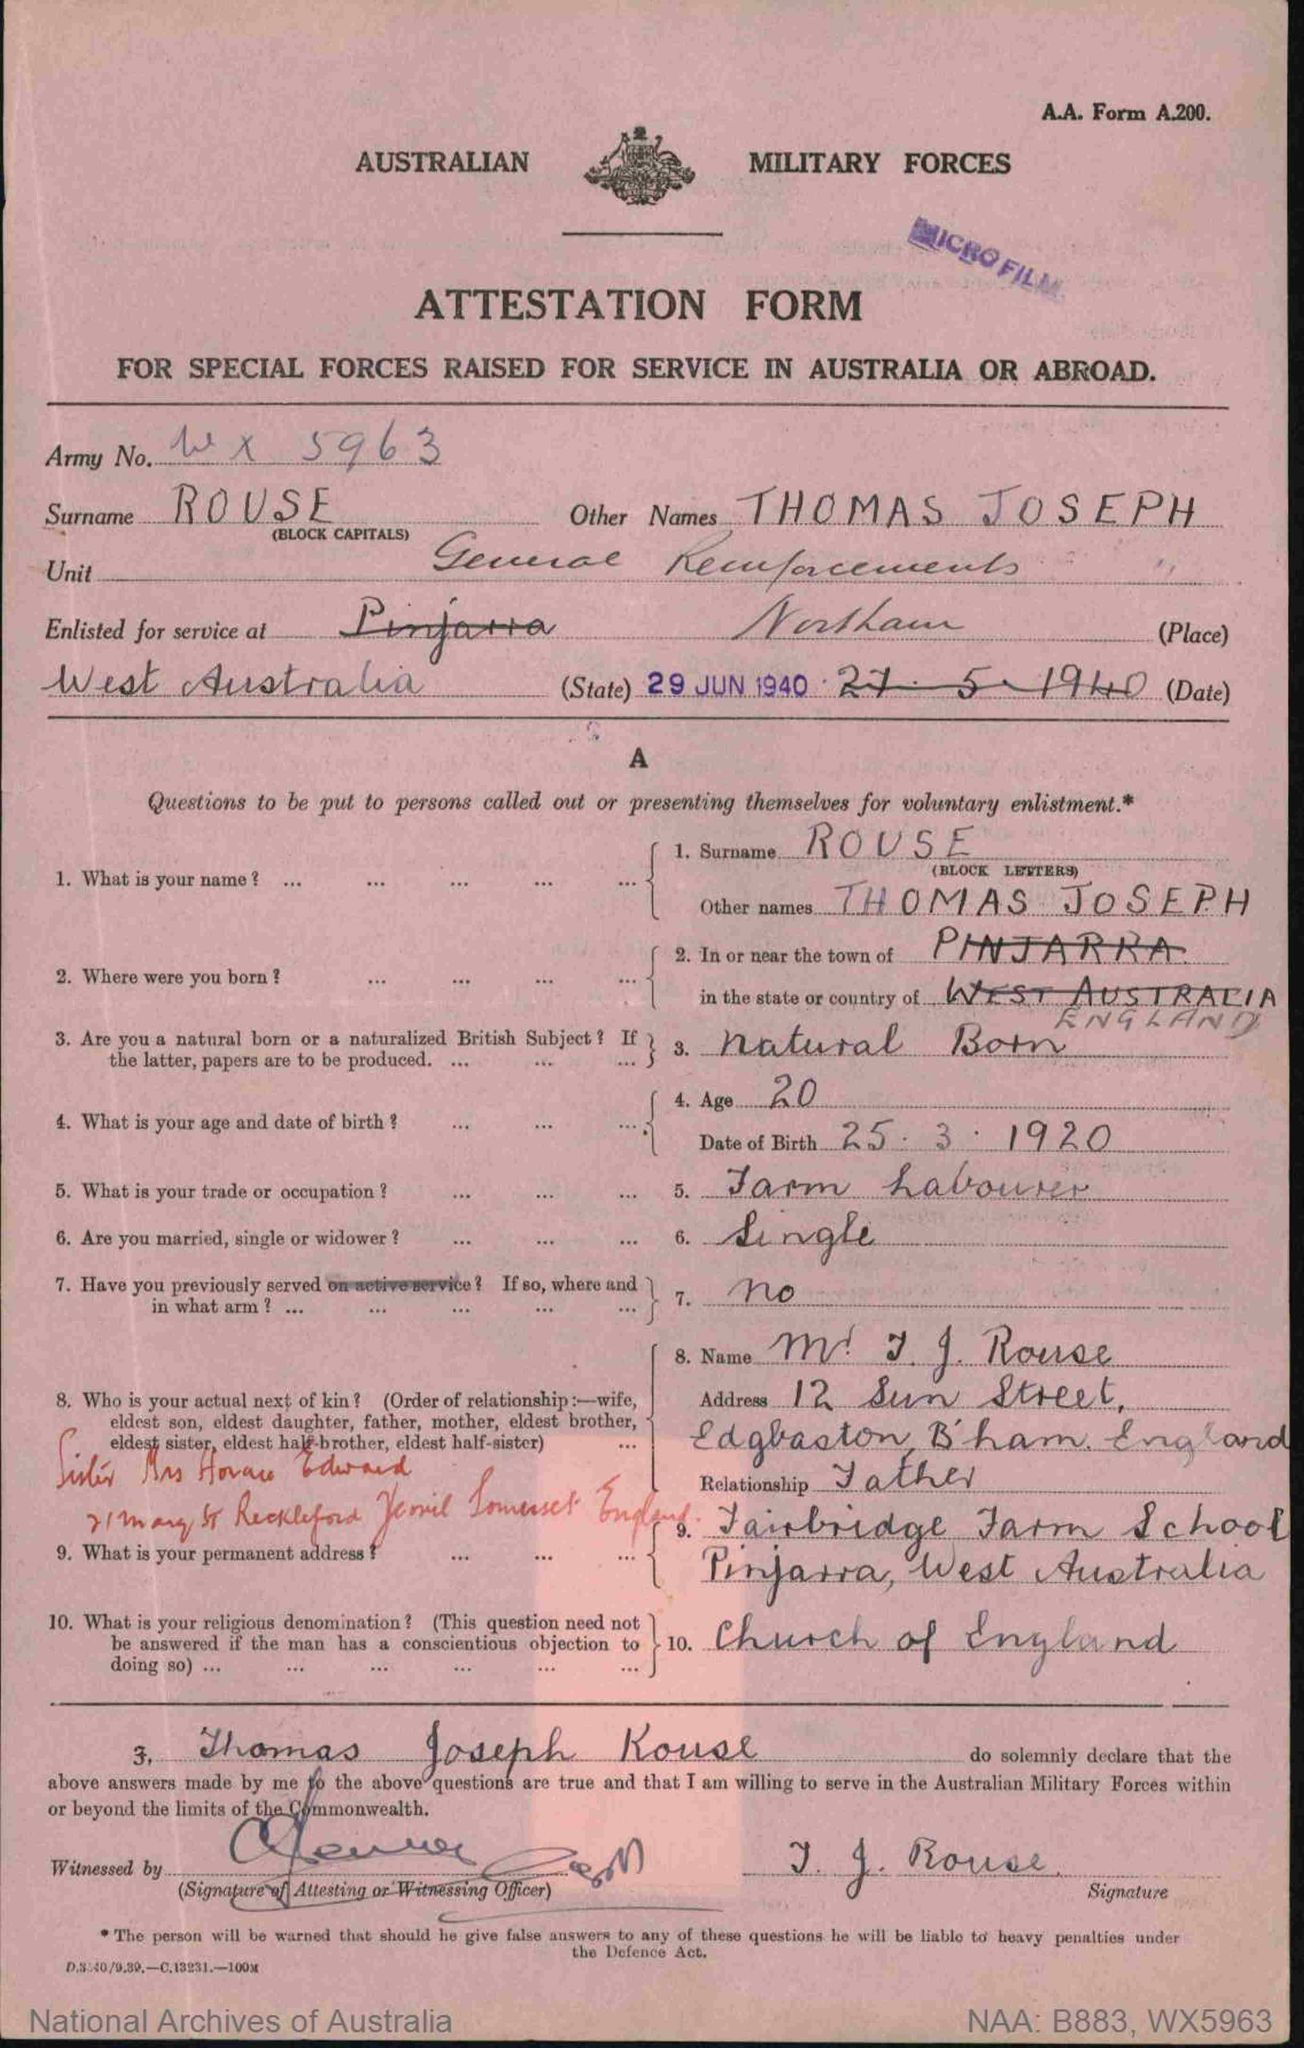 A.A. Form A.200.
AUSTRALIAN MILITARY FORCES
MICROFILM
ATTESTATION FORM
FOR SPECIAL FORCES RAISED FOR SERVICE IN AUSTRALIA OR ABROAD.
Army No. WX 5963
Surname ROUSE Other Names THOMAS JOSEPH
(BLOCK CAPITALS)
Unit General Reinforcements
Enlisted for service at Pinjarra Northam (Place)
West Australia (State) 29 JUN 1940 27. 5. 1940 (Date)
A
Questions to be put to persons called out or presenting themselves for voluntary enlistment.*
1. What is your name? ... ... ... ... ... 1. Surname ROUSE
(BLOCK LETTERS)
Other names THOMAS JOSEPH
2. Where were you born? ... ... ... ... 2. In or near the town of PINJARRA
in the state or country of WEST AUSTRALIA
ENGLAND
3. Are you a natural born or a naturalized British Subject? If
the latter, papers are to be produced. ... ... ... 3. Natural Born
4. What is your age and date of birth? ... ... ... 4. Age 20
Date of Birth 25. 3. 1920
5. What is your trade or occupation? ... ... ... 5. Farm Labourer
6. Are you married, single or widower? ... ... ... 6. Single
7. Have you previously served on active service? If so, where and
in what arm? ... ... ... ... ... 7. No
8. Name Mr. T. J. Rouse
8. Who is your actual next of kin? (Order of relationship:—wife, Address 12 Sun Street,
eldest son, eldest daughter, father, mother, eldest brother,
eldest sister, eldest half-brother, eldest half-sister) ... Edgbaston, B'ham. England
Sister Mrs Horace Edward
Relationship Father
21 Mary St Reckleford Yeovil Somerset England.
9. What is your permanent address? ... ... ... 9. Fairbridge Farm School
Pinjarra, West Australia
10. What is your religious denomination? (This question need not
be answered if the man has a conscientious objection to 10. Church of England
doing so) ... ... ... ... ... ...
I, Thomas Joseph Rouse do solemnly declare that the
above answers made by me to the above questions are true and that I am willing to serve in the Australian Military Forces within
or beyond the limits of the Commonwealth.
Witnessed by T. J. Rouse.
(Signature of Attesting or Witnessing Officer) Signature
* The person will be warned that should he give false answers to any of these questions he will be liable to heavy penalties under
the Defence Act.
D.3340/9.39.—C.13231.—100M
National Archives of Australia NAA: B883, WX5963